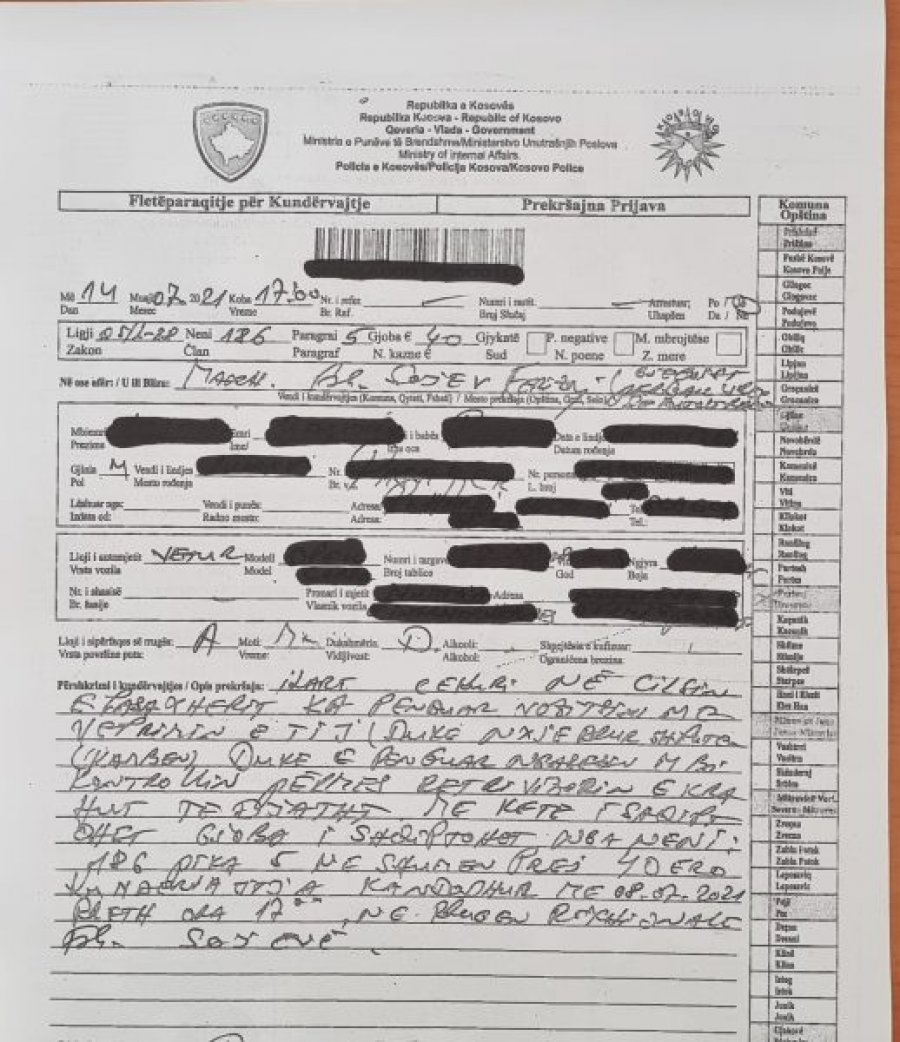 Republika e Kosovës
Republika Kosova - Republic of Kosovo
Qeveria - Vlada - Government
Ministria e Punëve të Brendshme/Ministarstvo Unutrašnjih Poslova
Ministry of Internal Affairs.
Policia e Kosovës/Policija Kosova/Kosovo Police
Fletëparaqitje për Kundërvajtje Prekršajna Prijava
Komuna
Opština
Më 14 Muaji 07 2021 Koha 17:00 Nr. i refer. Numri i rastit. Arrestuar, Po / Jo
Dan Mesec Vreme Br. Ref. Broj Slučaj Uhapšen Da / Ne
Ligji 05/L-28 Neni 186 Paragraf 5 Gjoba € 40 Gjykatë P. negative M. mbrojtëse
Zakon Član Paragraf N. kazne € Sud N. poene Z. mere
Në ose afër: / U ili Blizu: Magj.
Vendi i kundërvajtjes (Komuna, Qyteti, Fshati) / Mesto prekršaja (Opština, Grad, Selo)
Mbiemri Emri i babës Data e lindjes
Prezime Ime Ime oca Datum rođenja
Gjinia M Vendi i lindjes Nr. Nr. personal
Pol Mesto rođenja L. broj
Lëshuar nga: Vendi i punës: Adresa: Tel
Izdata od: Radno mesto: Adresa: Tel.:
Lloji i automjetit VETUR Modeli Numri i targave Ngjyra
Vrsta vozila Model Broj tablice God Boja
Nr. i shasisë Pronari i mjetit Adresa
Br. šasije Vlasnik vozila
Lloji i sipërfaqes së rrugës: A Moti: Dukshmëria: D Alkooli: Shpejtësia e kufizuar:
Vrsta površine puta: Vreme: Vidljivost: Alkohol: Ograničena brzina:
Përshkrimi i kundërvajtjes / Opis prekršaja: ILART CEKURI NË CILSIN
E PASAGJERIT KA PENGUAR VOZITSIN ME
VEPRIMIN E TIJ (DUKE NXJERRUR SHPUTEN
(KAMBEN) DUKE E PENGUAR NGASESIN MBI
KONTROLLIN PËRMES RETROVIZORIN E KRA
HUT TE DJATHT ME KETE I SHQIPT
OHET GJOBA I SHQIPTOHET NGA NENI:
186 PIKA 5 NE SHUMEN PREJ 40 ERO
KUNDERVAJTJA KA NDODHUR ME 08.07.2021
RRETH ORA 17⁰⁰, NE RRUGEN REGJIONALE
Prishtinë
Priština
Fushë Kosovë
Kosovo Polje
Gllogoc
Glogovac
Podujevë
Podujevo
Obiliq
Obilić
Lipjan
Lipljan
Graçanicë
Gračanica
Gjilan
Gnjilane
Novobërdë
Novobrdo
Kamenicë
Kamenica
Viti
Vitina
Kllokot
Klokot
Ranillug
Ranilug
Partesh
Parteš
Ferizaj
Uroševac
Kaçanik
Kačanik
Shtime
Štimlje
Shtërpcë
Štrpce
Hani i Elezit
Elez Han
Vushtrri
Vučitrn
Skënderaj
Srbica
Zveçan
Zvečan
Zubin Potok
Zubin Potok
Leposaviq
Leposavić
Pejë
Peć
Deçan
Dečani
Klinë
Klina
Istog
Istok
Junik
Junik
Gjakovë